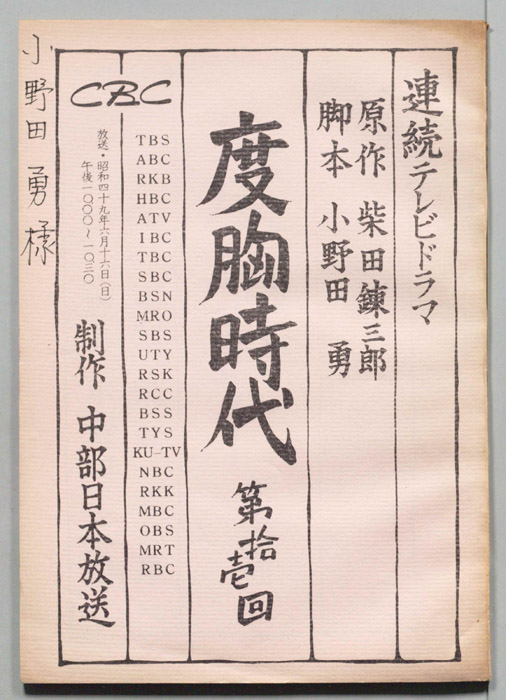 連続テレビドラマ
原作 柴田錬三郎
脚本 小野田 勇
度胸時代
第拾壱回
TBS
ABC
RKB
HBC
ATV
IBC
TBC
SBC
BSN
MRO
SBS
UTY
RSK
RCC
BSS
TYS
KU-TV
NBC
RKK
MBC
OBS
MRT
RBC
CBC
放送・昭和四十九年六月十六日(日)
午後一〇〇〇~一〇三〇
制作 中部日本放送
小野田 勇 様